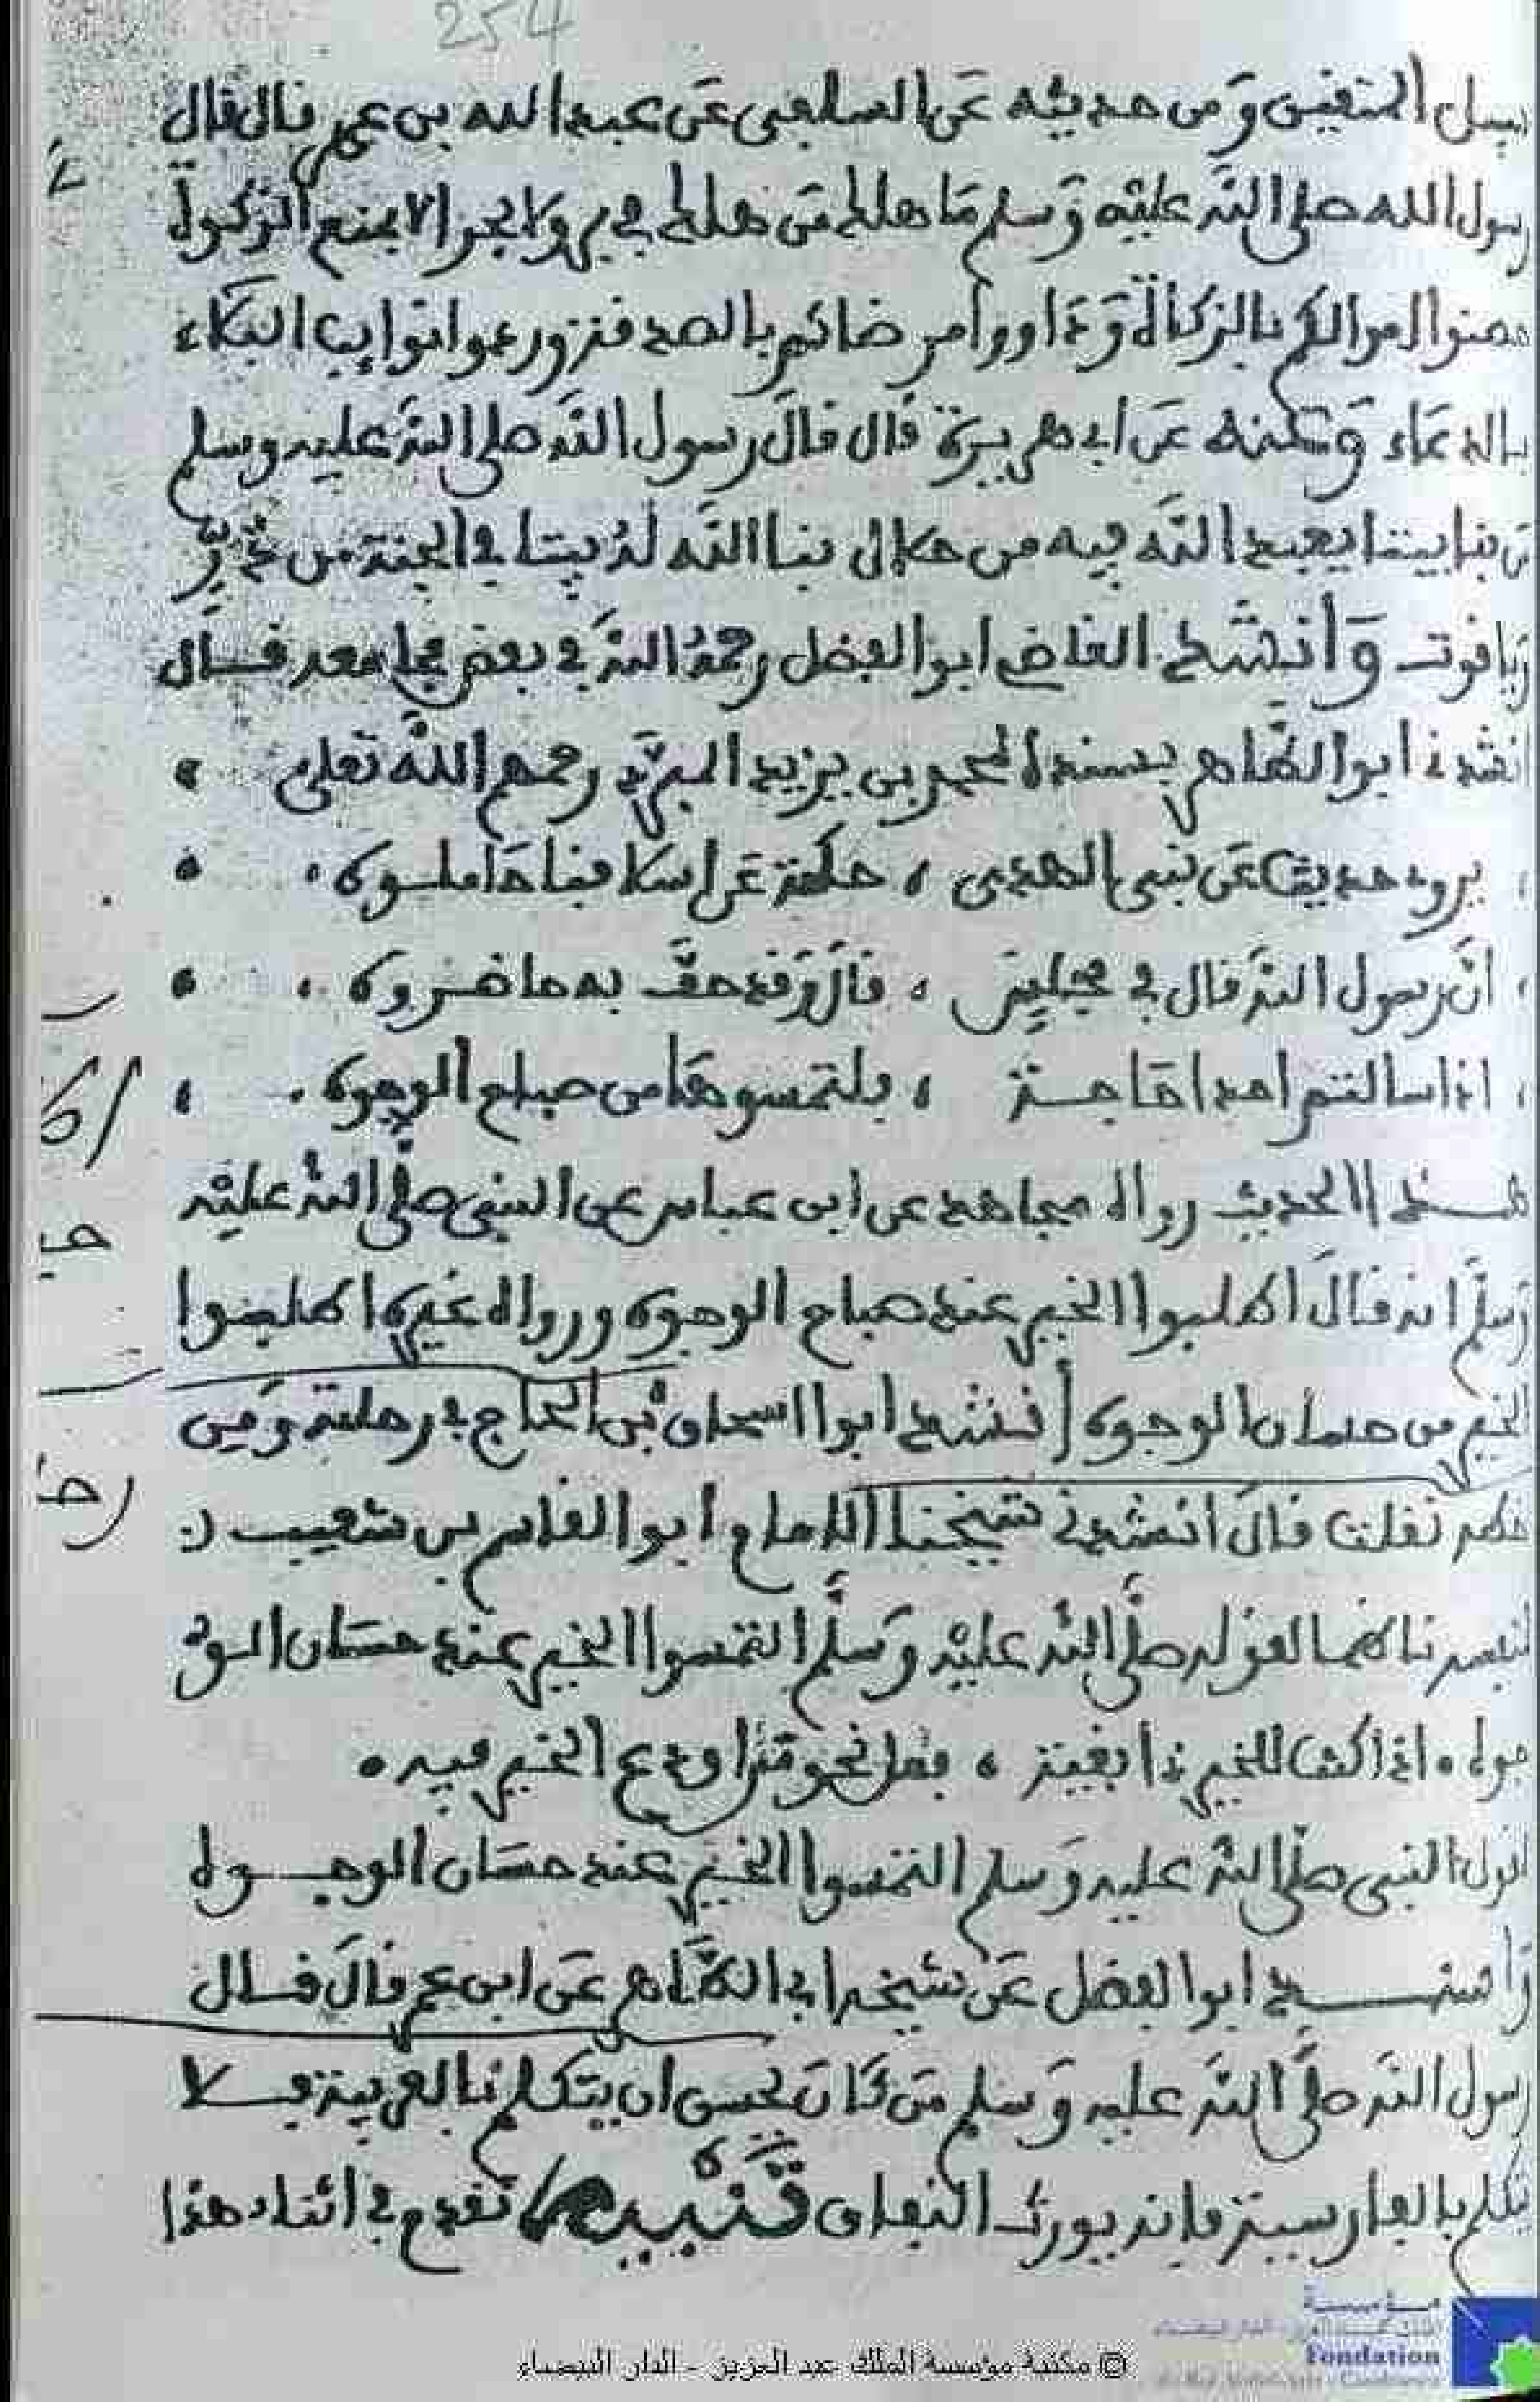 254
سبيل المتقين ومن حديثه عن السلفي عن عبد الله بن عمر قال قال
رسول الله صلى الله عليه وسلم ما هلك من هلك في بر ولا بحر الا بمنع الزكوة
حصنوا اموالكم بالزكاة وداووا مرضاكم بالصدقة وردعوا نوايب البلاء
بالدعاء وعنه عن أبي هريرة قال قال رسول الله صلى الله عليه وسلم
من بنا بيتا يعبد الله فيه من حلال بنا الله له بيتا في الجنة من در
وياقوت وأنشد القاضي ابو الفضل رحمه الله في بعض مجامعه قال
انشدني ابو الطاهر بسنده لمحمد بن يزيد المبرد رحمهم الله تعلى
يروى حديث عن نبي الهدى ، حكمة عن اسلافنا حاملوه
أن رسول الله قال في مجلس ، قال وقد حف به حاضروه
اذا سالتم احدا حاجة ، فلتمسوها من صباح الوجوه
هذا الحديث رواه مجاهد عن ابن عباس عن النبي صلى الله عليه
وسلم انه قال اطلبوا الخير عند صباح الوجوه ورواه غيره اطلبوا
الخير من حسان الوجوه [ فنشد ابوا اسحاق بن الحاج في رحلته ومن
خطه نقلت قال أنشدني شيخنا الامام أبو القاسم بن شعيب
لنفسه ناظما لقوله صلى الله عليه وسلم التمسوا الخير عند حسان الو
جوه ، اذا كنت للخير ذا بغية ، فعل نحو من اودع الخير فيه
لقول النبي صلى الله عليه وسلم التمسوا الخير عند حسان الوجوه
وأسند ابو الفضل عن شيخه ابي الطاهر عن ابن عمر قال قال
رسول الله صلى الله عليه وسلم من كان يحسن ان يتكلم بالعربية فلا
يتكلم بالفارسية فانه يورث النفاق تنبيه تقدم في اثناء هذا
مؤسسة
Fondation
© مكتبة مؤسسة الملك عبد العزيز - الدار البيضاء